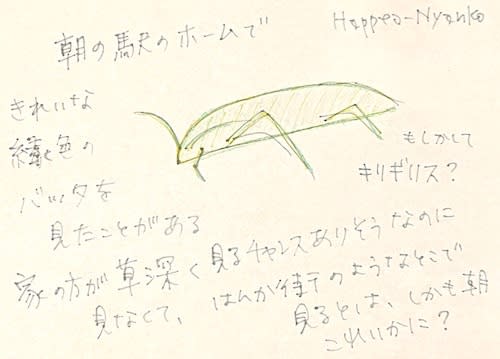 朝の駅のホームで
Happea-Nyanko
きれいな
緑色の
バッタを
見たことがある
もしかして
キリギリス?
家の方が草深く見るチャンスありそうなのに
見なくて、はんか街のようなそこで
見るとは、しかも朝
これいかに?